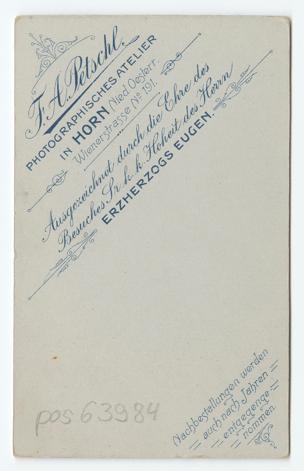 F. A. Petschl.
PHOTOGRAPHISCHES ATELIER
IN HORN Nied. Oesterr.
Wienerstrasse No. 191.
Ausgezeichnet durch die Ehre des
Besuches Sr. k. k. Hoheit des Herrn
ERZHERZOGS EUGEN.
Nachbestellungen werden
auch nach Jahren
entgegenge-
nommen.
pos 63984